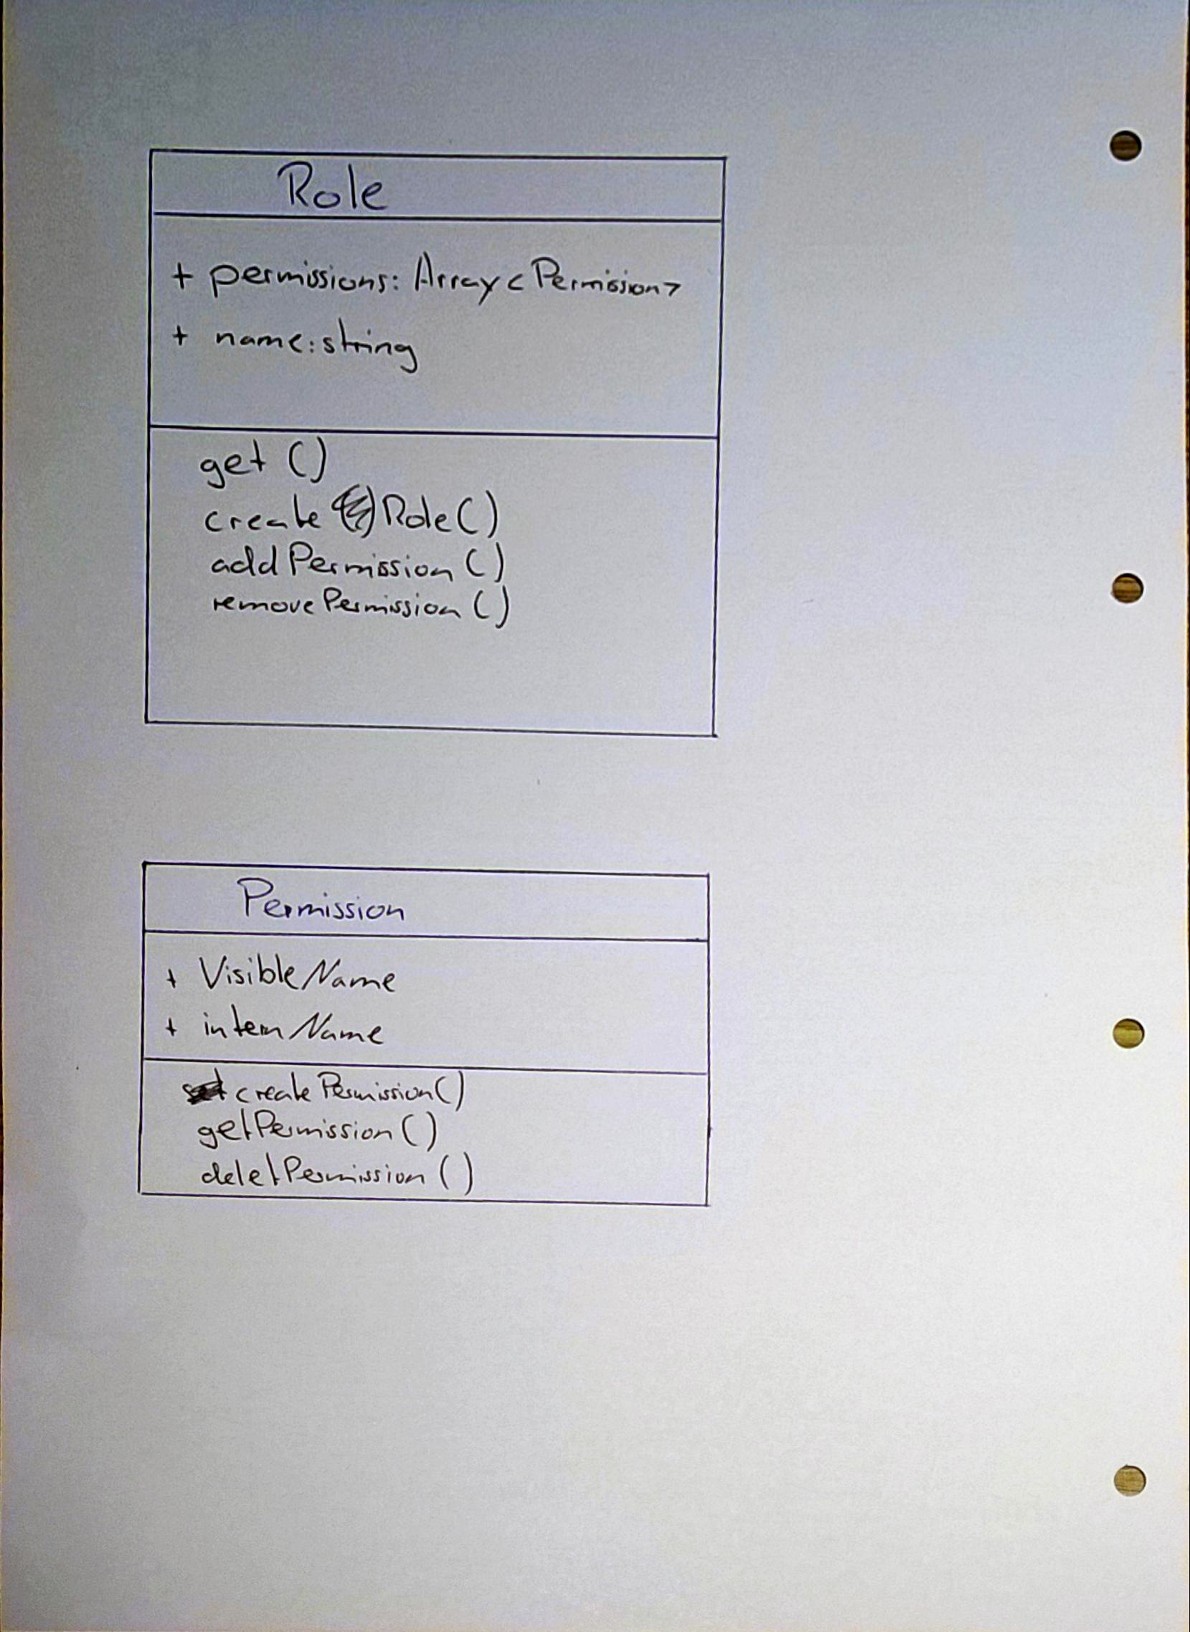 Role
+ permissions: Array<Permission>
+ name:string
get ()
create Role()
addPermission ()
removePermission ()
Permission
+ VisibleName
+ internName
createPermission()
getPermission()
deletPermission ()